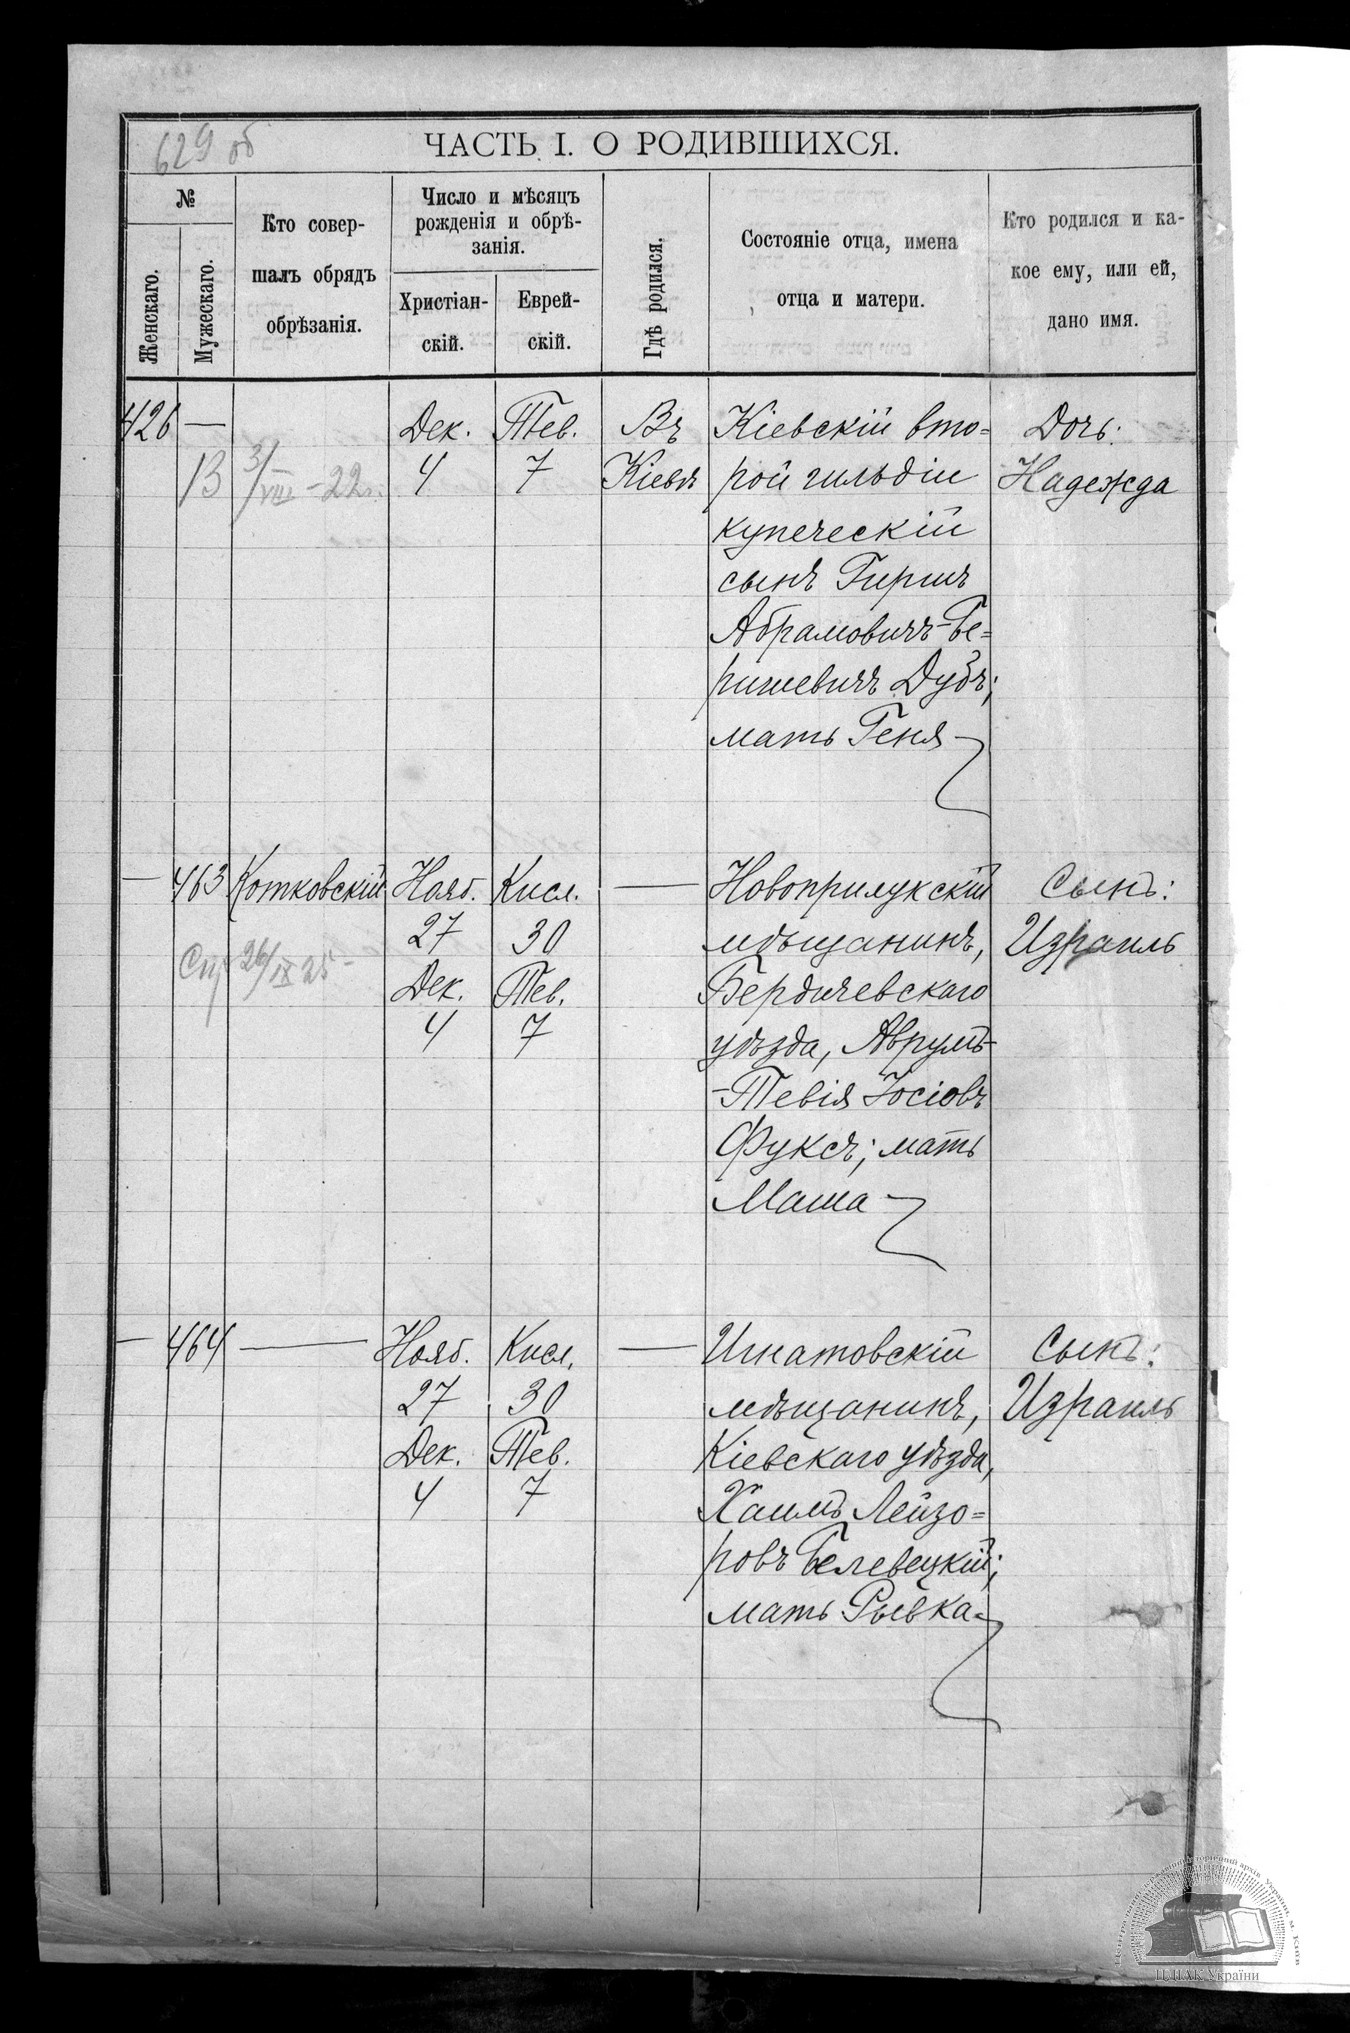 629 об
ЧАСТЬ I. О РОДИВШИХСЯ.
№
Женскаго.
Мужескаго.
Кто совер-
шалъ обрядъ
обрѣзанія.
Число и мѣсяцъ
рожденія и обрѣ-
занія.
Христіан-
скій.
Еврей-
скій.
Гдѣ родился.
Состояніе отца, имена
отца и матери.
Кто родился и ка-
кое ему, или ей,
дано имя.
426 — Дек. Тев. Въ Кіевскій вто=
Дочь:
В 3/VIII - 22 г. 4 7 Кіевѣ рой гильдіи
Надежда
купеческій
сынъ Гиршъ
Абрамовичъ-Бе=
ришевичъ Дубъ;
мать Геня
— 463 Котковскій Нояб. Кисл. — Новоприлукскій
Сынъ:
27 30 мѣщанинъ,
Израиль
Спр 26/IX 25 -
Дек. Тев. Бердичевскаго
4 7 уѣзда, Аврумъ-
-Тевія Іосіовъ
Фуксъ; мать
Маша
— 464 — Нояб. Кисл. — Игнатовскій
Сынъ:
27 30 мѣщанинъ,
Израиль
Дек. Тев. Кіевскаго уѣзда,
4 7 Хаимъ Лейзо=
ровъ Белевецкій;
мать Рывка
ЦДІАК України